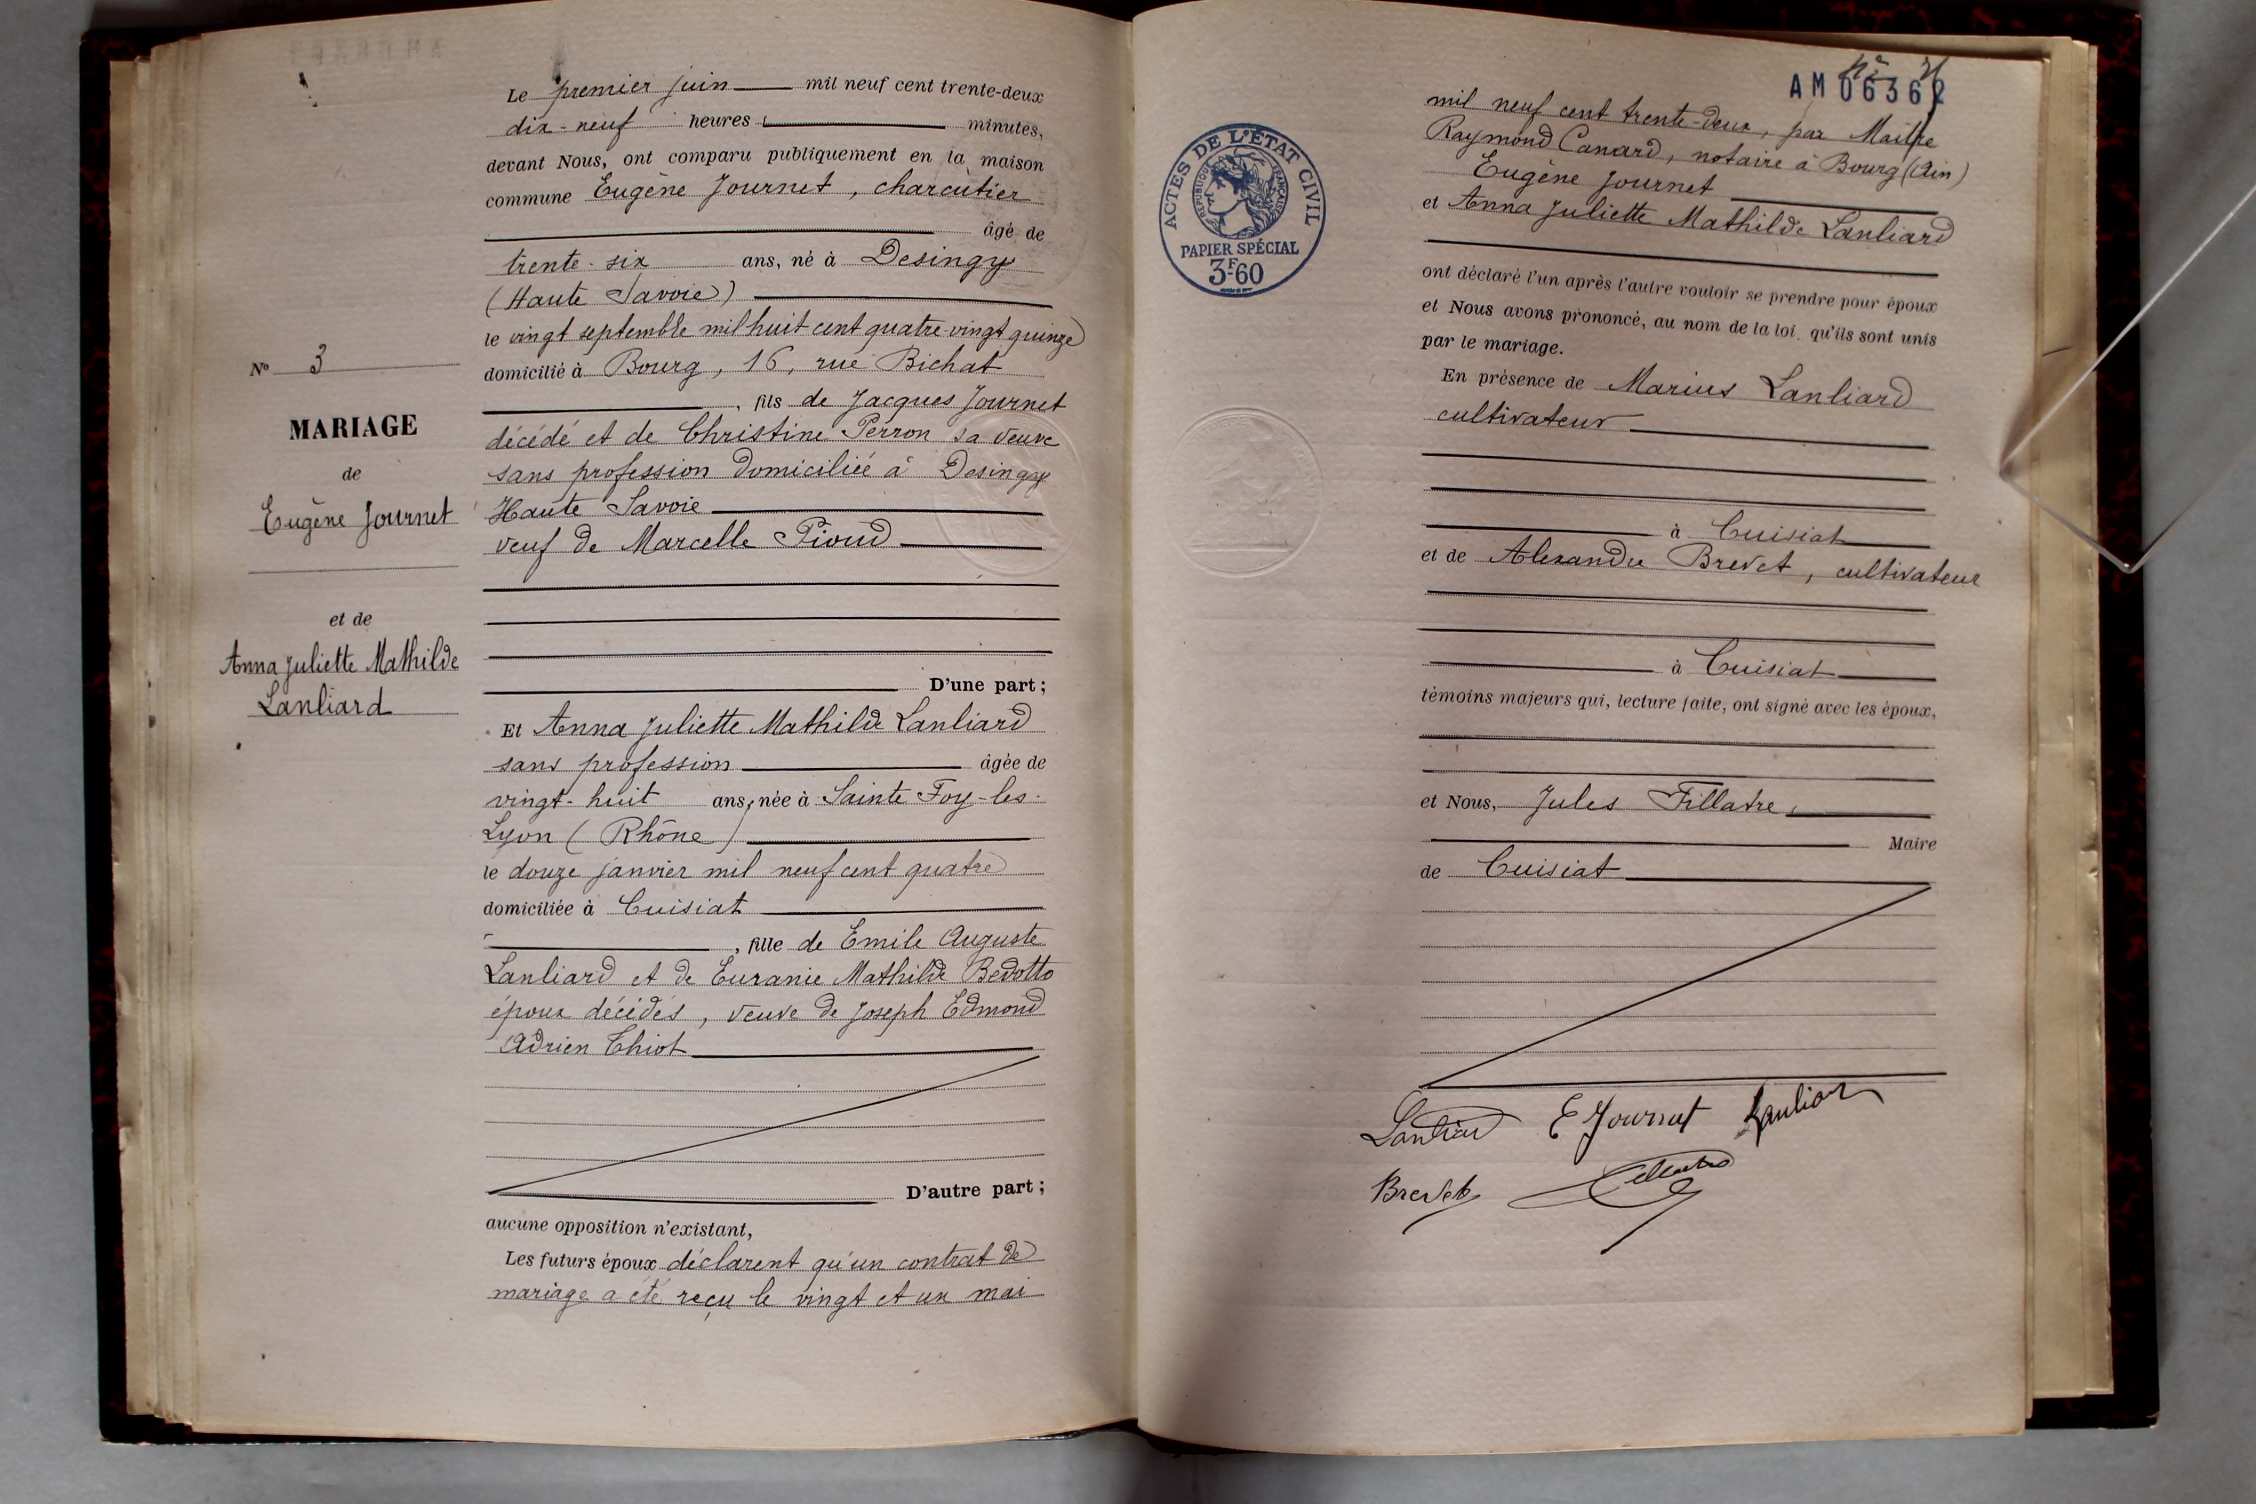 Le premier juin mil neuf cent trente-deux
dix-neuf heures minutes,
devant Nous, ont comparu publiquement en la maison
commune Eugène Journet, charcutier
âgé de
trente-six ans, né à Desingy
(Haute Savoie)
le vingt septembre mil huit cent quatre-vingt quinze
domicilié à Bourg, 16, rue Bichat
, fils de Jacques Journet
décédé et de Christine Perron sa veuve
sans profession domiciliée à Desingy
Haute Savoie
veuf de Marcelle Pioud
D'une part;
Nº 3
MARIAGE
de
Eugène Journet
et de
Anna Juliette Mathilde
Lanliard
Et Anna Juliette Mathilde Lanliard
sans profession âgée de
vingt-huit ans, née à Sainte Foy-les-
Lyon (Rhône)
le douze janvier mil neuf cent quatre
domiciliée à Cuisiat
, fille de Emile Auguste
Lanliard et de Euranie Mathilde Bedotto
époux décédés, veuve de Joseph Edmond
Adrien Thiot
D'autre part;
aucune opposition n'existant,
Les futurs époux déclarent qu'un contrat de
mariage a été reçu le vingt et un mai
AM 06362
ACTES DE L'ÉTAT CIVIL
RÉPUBLIQUE FRANÇAISE
PAPIER SPÉCIAL
3F60
mil neuf cent trente-deux, par Maître
Raymond Canard, notaire à Bourg (Ain)
Eugène Journet
et Anna Juliette Mathilde Lanliard
ont déclaré l'un après l'autre vouloir se prendre pour époux
et Nous avons prononcé, au nom de la loi, qu'ils sont unis
par le mariage.
En présence de Marius Lanliard
cultivateur
à Cuisiat
et de Alexandre Brevet, cultivateur
à Cuisiat
témoins majeurs qui, lecture faite, ont signé avec les époux,
et Nous, Jules Fillatre,
Maire
de Cuisiat
Lanliard E Journet Lanliard
Brevet